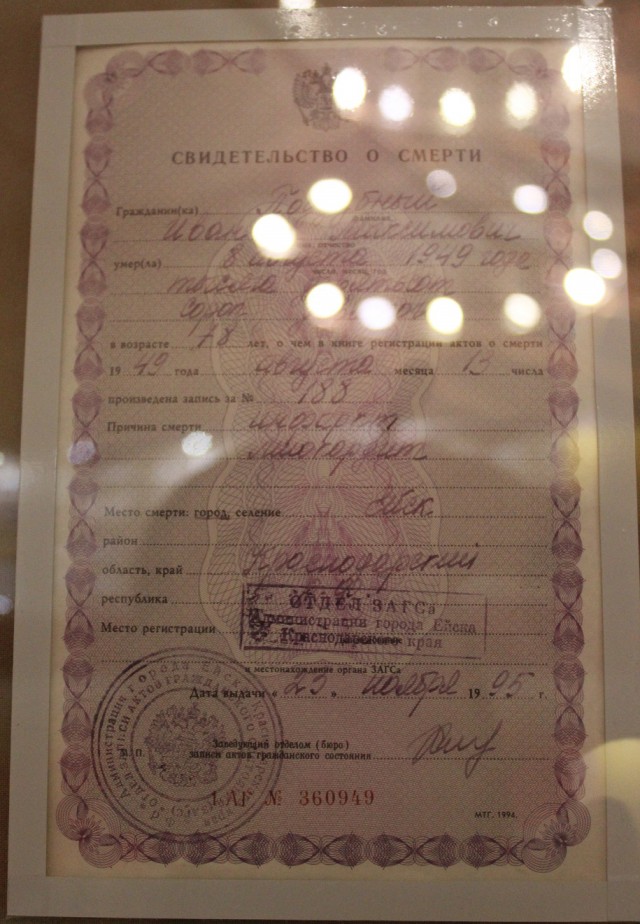 СВИДЕТЕЛЬСТВО О СМЕРТИ
Гражданин(ка)
Иван Максимович
умер(ла) 8 августа 1949 года
число, месяц, год
тысяча
сорок
в возрасте 78 лет, о чем в книге регистрации актов о смерти
1949 года августа месяца 13 числа
произведена запись за № 188
Причина смерти
миокардит
Место смерти: город, селение Ейск.
район
область, край Краснодарский
республика
ОТДЕЛ ЗАГСа
Администрации города Ейска
Место регистрации
Краснодарского края
и местонахождение органа ЗАГСа
Дата выдачи « 23 » ноября 1995 г.
М. П.
Заведующий отделом (бюро)
записи актов гражданского состояния
I-АГ № 360949
МТГ. 1994.